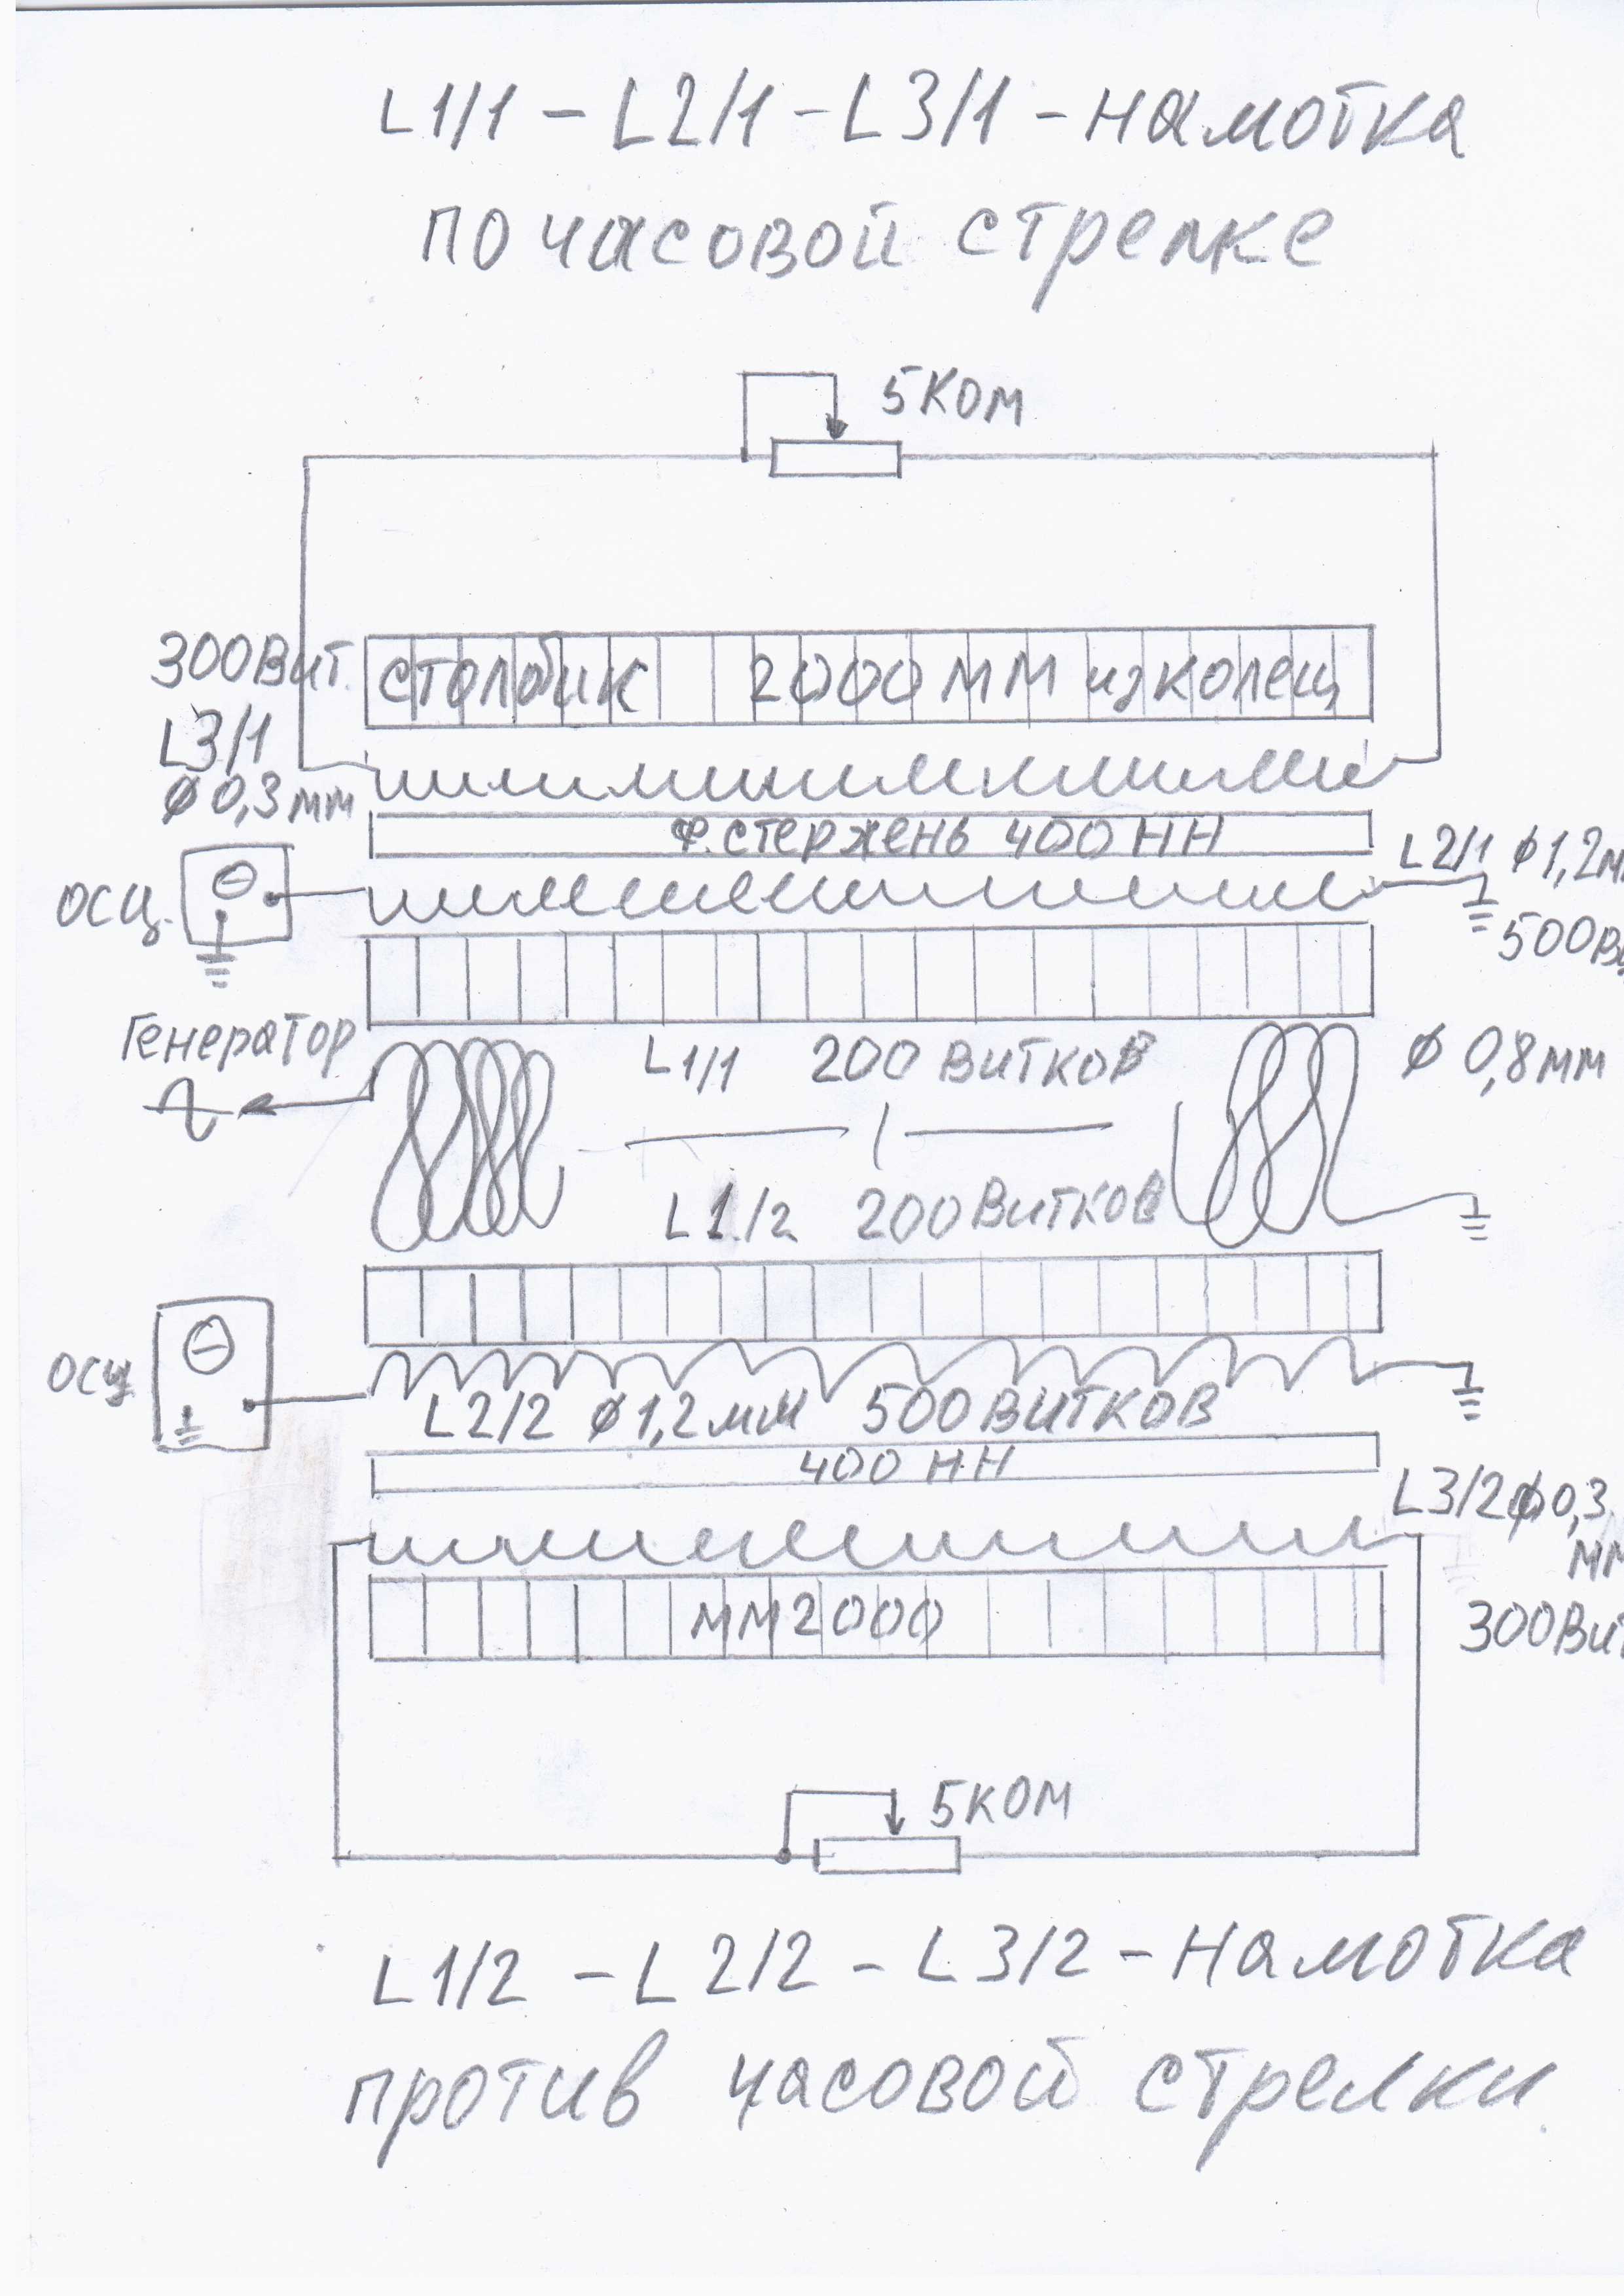 L1/1 – L2/1 – L3/1 – намотка
по часовой стрелке
5 КОМ
300 Вит.
столбик 2000 ММ из колец
L3/1
ф 0,3 мм
Ф. стержень 400 НН
L2/1 ф 1,2м
осц.
500
Генератор
L1/1 200 витков
ф 0,8 мм
L1/2 200 Витков
осц
L2/2 ф 1,2 мм 500 витков
400 НН
L3/2 ф 0,3
мм
мм 2000
300 Вит
5 КОМ
L1/2 – L2/2 – L3/2 – намотка
против часовой стрелки.